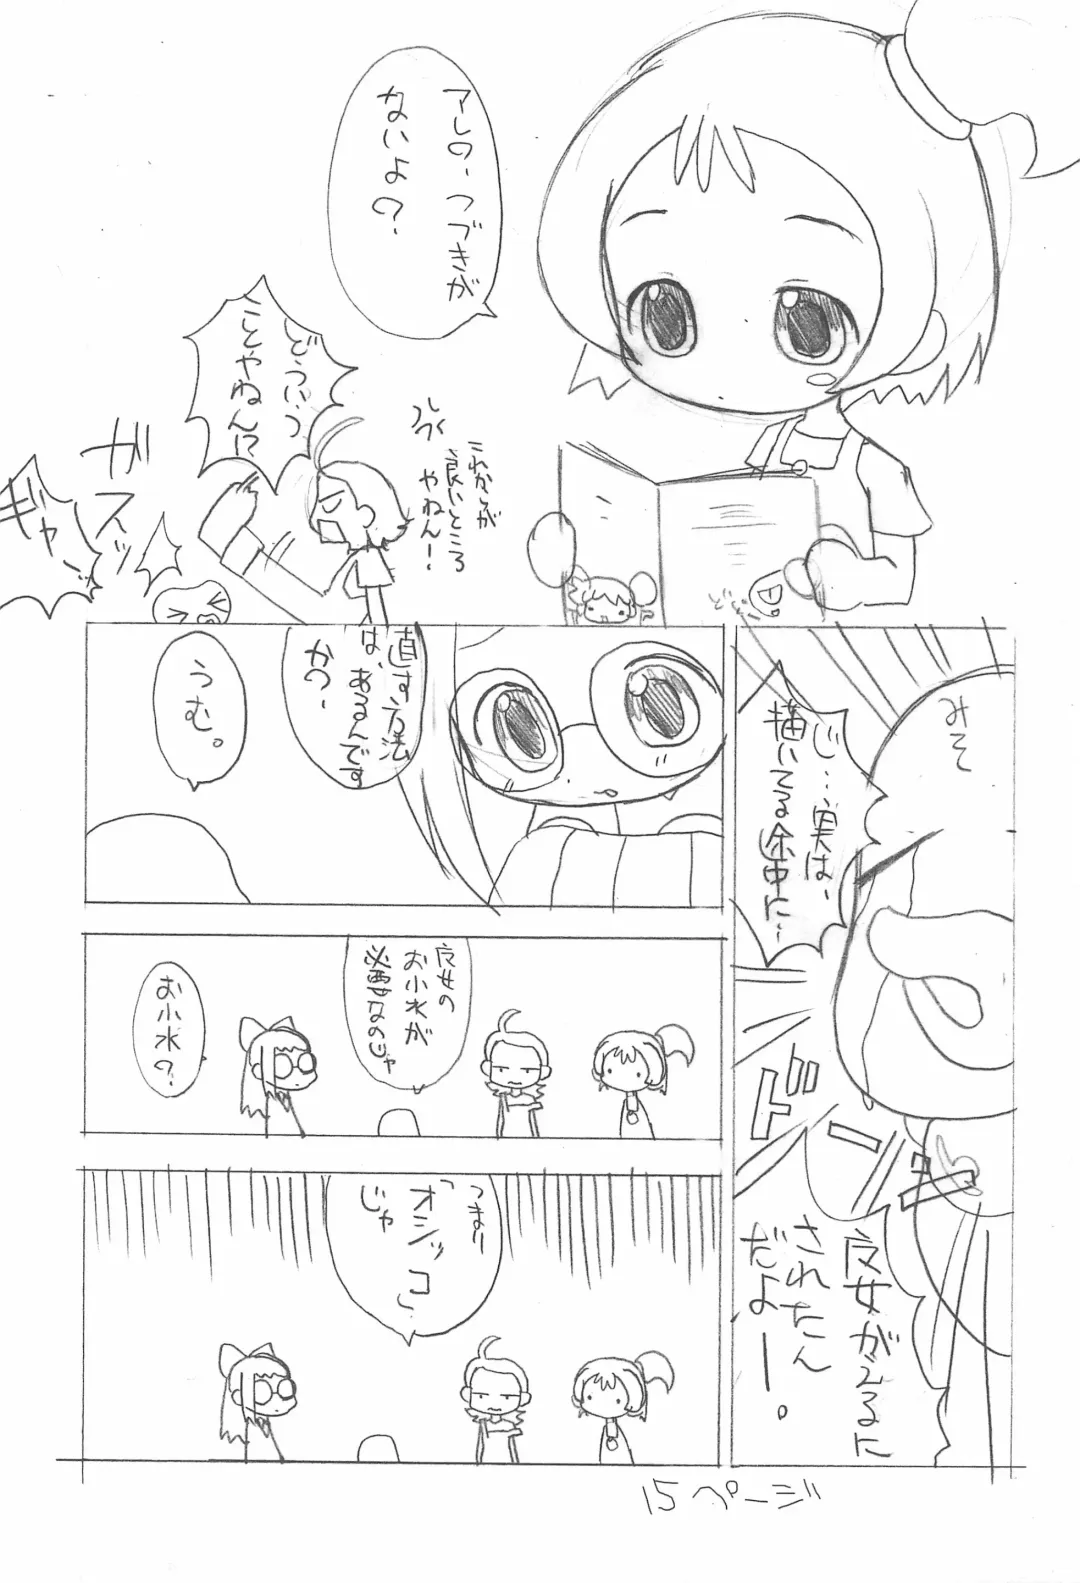 アレの、つづきが
ないよ?
これからが
良いところ
やねん!
どういう
ことやねんに
ガスッ
ギャー
みそ
じ…実は、
描いてる途中に…
ドドーン
魔女ガエルに
されたん
だよー。
直す方法
は、あるんです
か?
うむ。
魔女の
お小水が
必要なのじゃ
お小水?
つまり
「オシッコ」
じゃ
15ページ